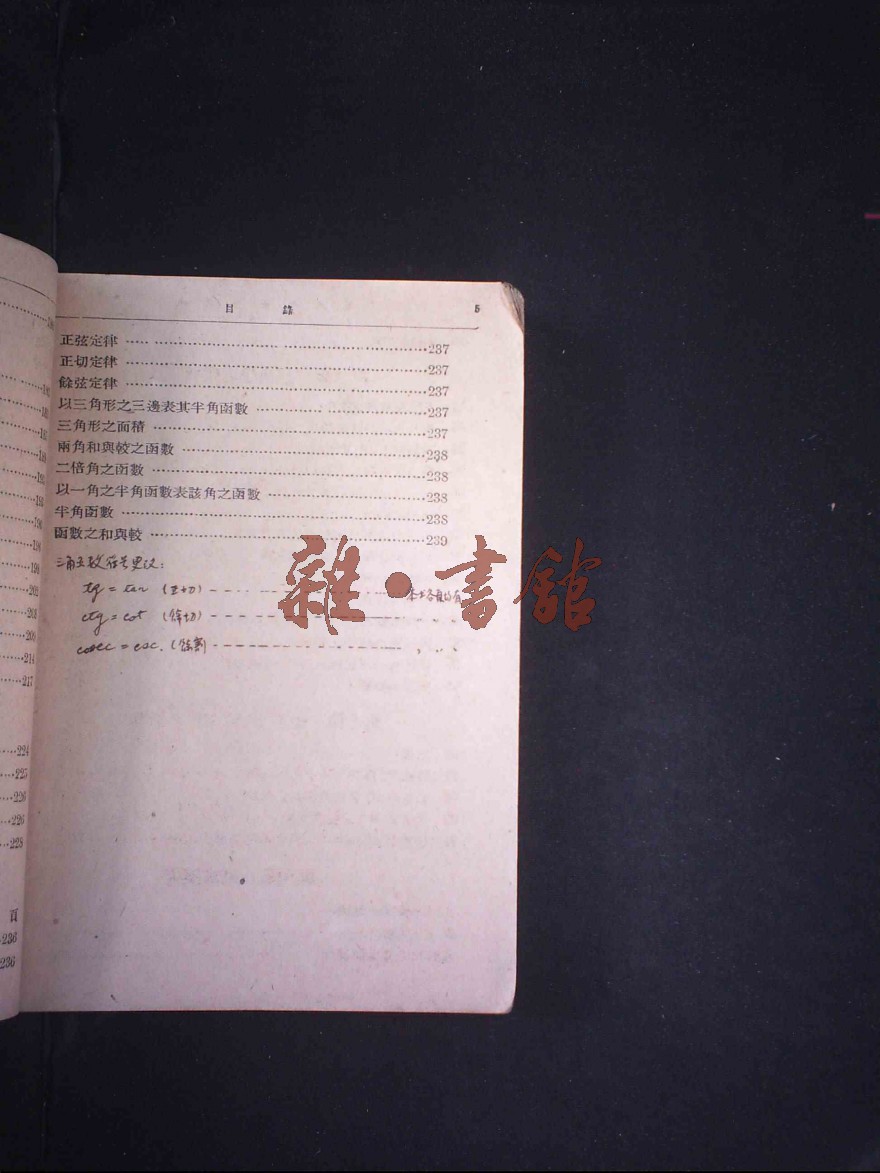 目錄 5
正弦定律 237
正切定律 237
餘弦定律 237
以三角形之三邊表其半角函數 237
三角形之面積 237
兩角和與較之函數 238
二倍角之函數 238
以一角之半角函數表該角之函數 238
半角函數 238
函數之和與較 239
tg = tan (正切)
ctg = cot (馀切)
cosec = csc. (馀割)
雜·書館
192
202
208
214
217
224
225
226
226
228
頁
236
236